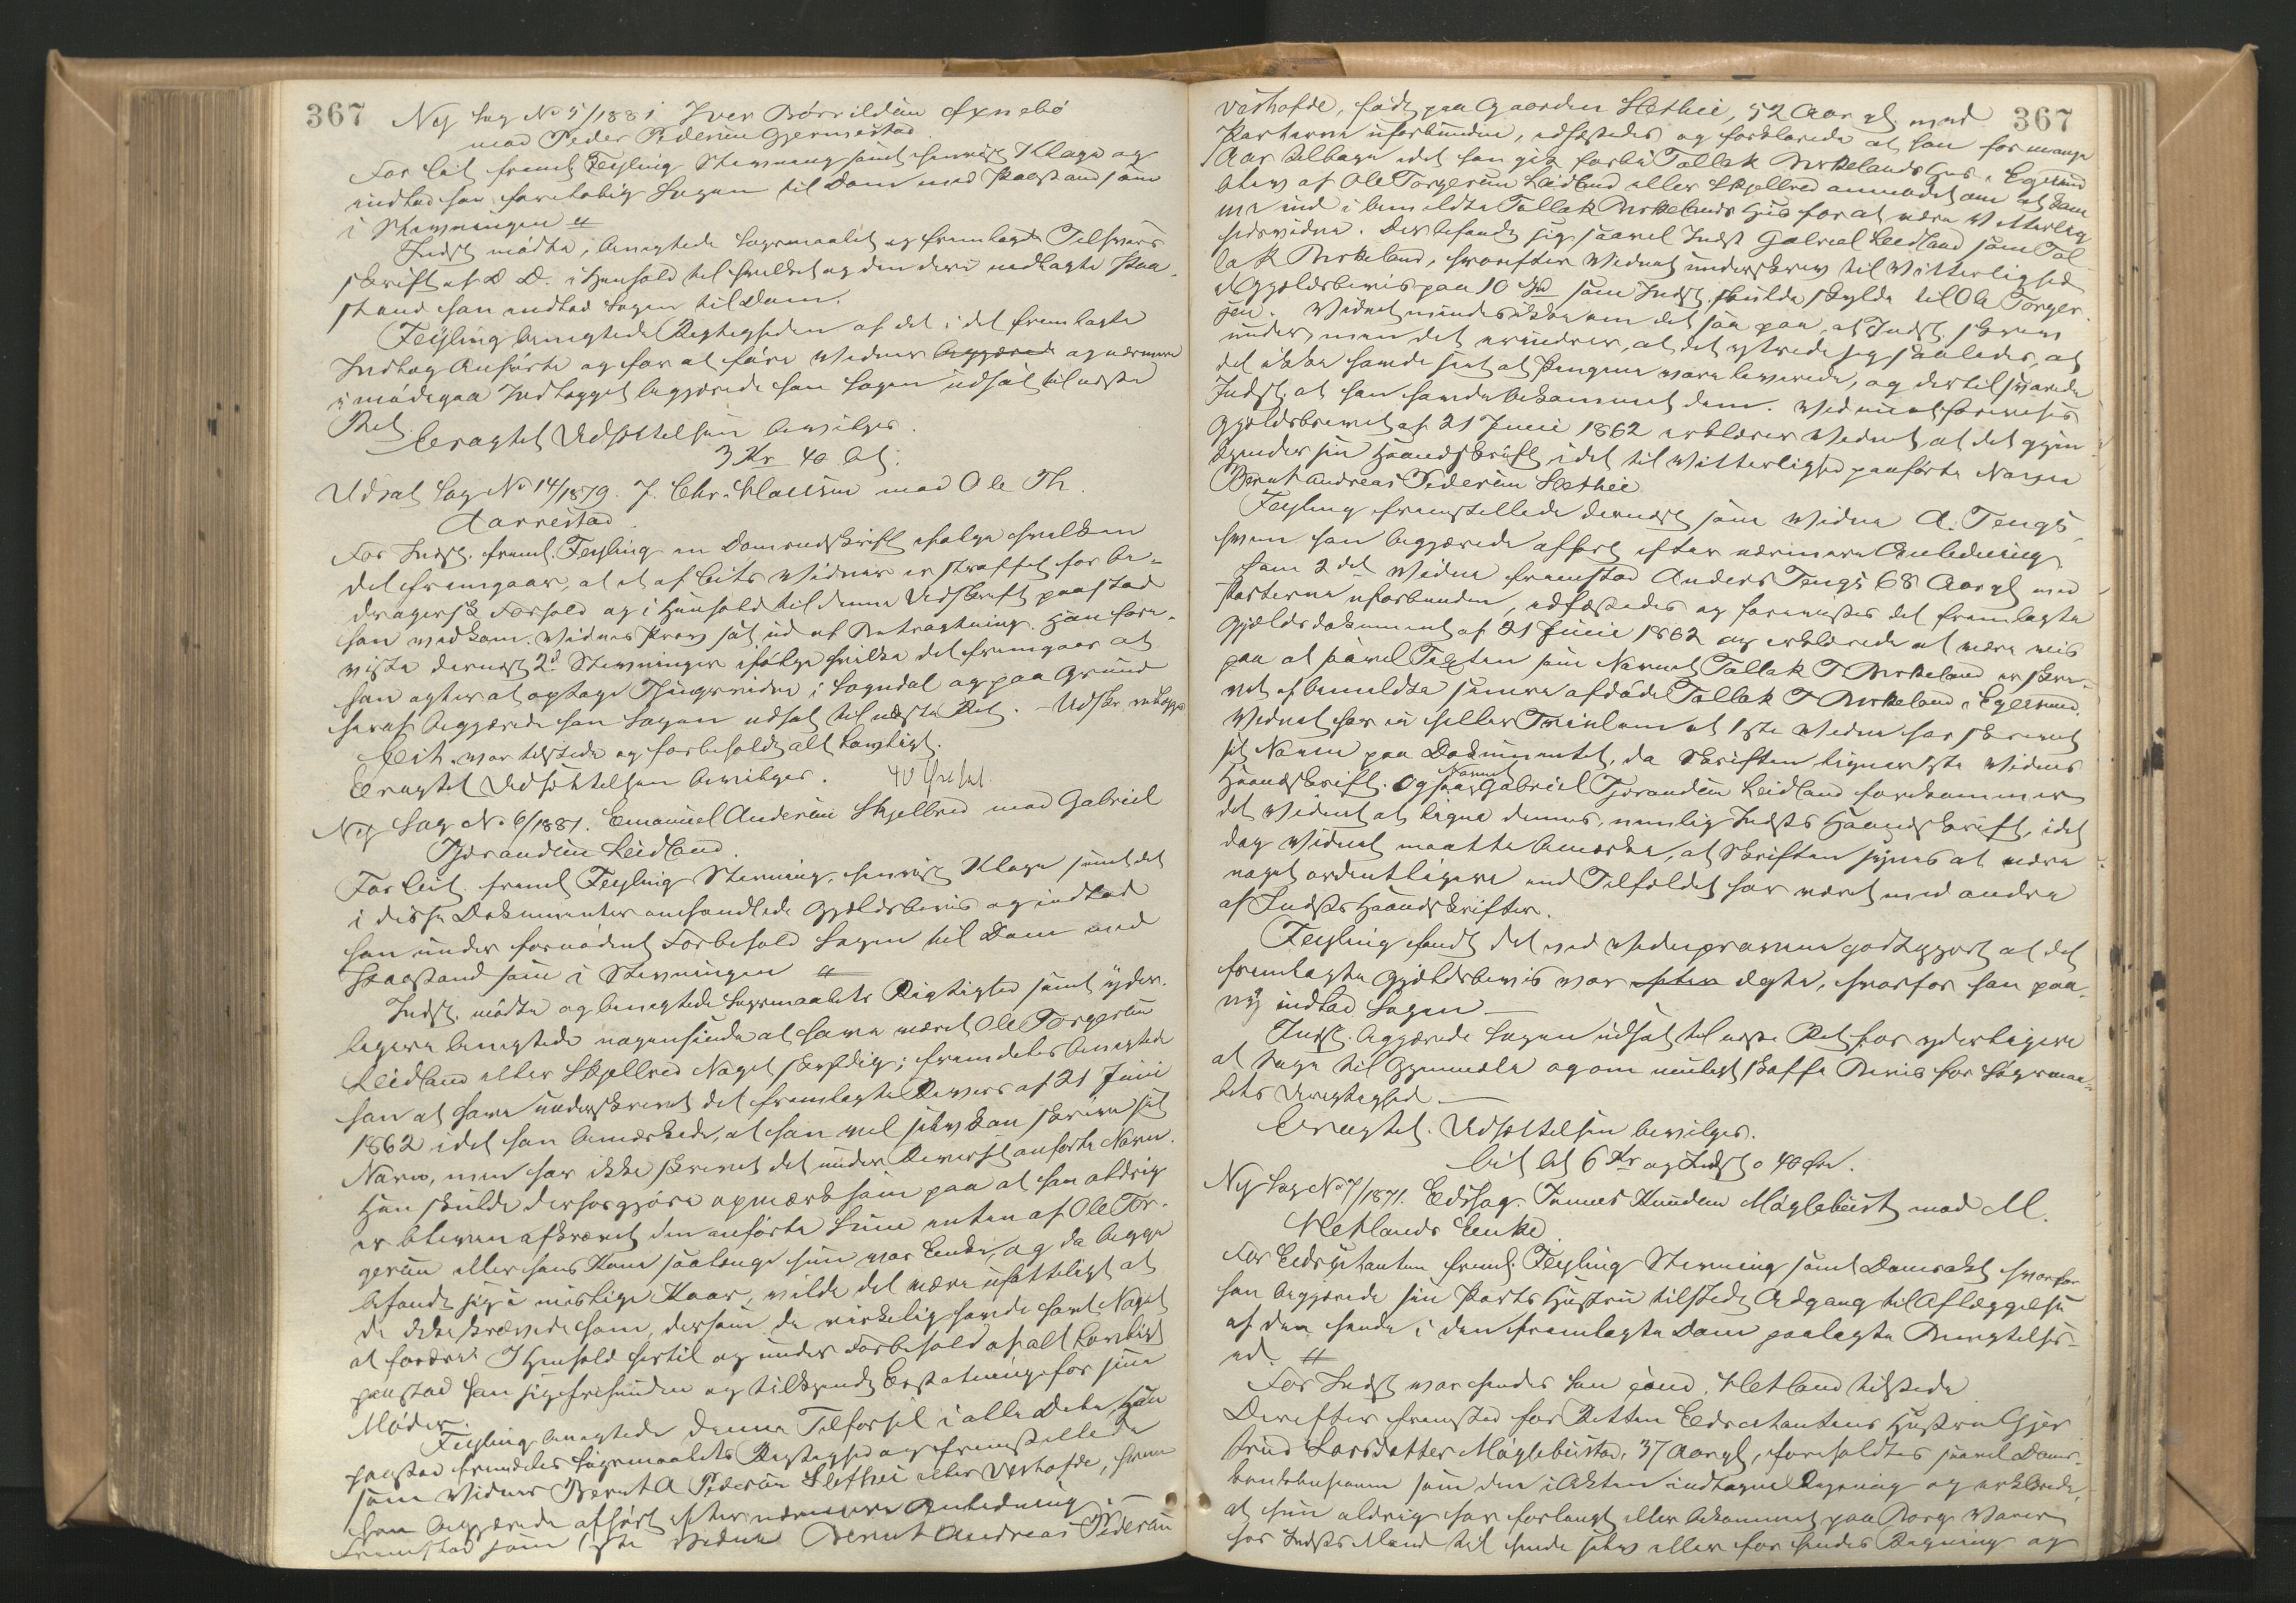 367
Ny Sag No 5/1881 Iver Börrildsen Øxnebö
mod Peder Pedersen Gjermestad.
For Cit. freml. Feyling Stevning samt henvist Klage og
indlod han foreløbig Sagen til Dom med Paastand som
i Stevningen #
Indst. mødte, benegtede Sagsmaalet og fremlagde Tilsvars
skrift af D. D. i Henhold til hvilket og den deri nedlagte Paa-
stand han indlod Sagen til Dom.
Feyling benegtede Rigtigheden af det i det fremlagte
Indlæg Anførte og for at føre Vidner begjærede og nærmere
imødegaa Indlægget begjærede han Sagen udsat til næste
Ret.
Eragtet Udsættelsen bevilges.
3 Kr 40 Øre.
Udsat Sag No 14/1879. J. Chr. Clausen mod Ole Th.
Aarrestad.
For Indst. freml. Feyling en Domsudskrift ifølge hvilken
det fremgaar, at et af Cits Vidner er straffet for be-
dragersk Forhold og i Henhold til denne Udskrift paastod
han vedkom. Vidnes Prov sat ud af Betragtning. Han fore-
viste dernæst 2d Stevninger ifølge hvilke det fremgaar at
han agter at optage Thingsvidne i Sogndal og paa Grund
heraf begjærede han Sagen udsat til næste Ret. – Udskr.
Cit. var tilstede og forbeholdt alt Lovligt.
Eragtet Udsættelsen bevilges. 40 Øre bet.
Ny Sag No 6/1881. Emanuel Andersen Skjellred mod Gabriel
Tjerandsen Leidland.
For Cit. freml. Feyling Stevning, henvist Klage samt det
i disse Dokumenter omhandlede Gjældsbevis og indlod
han under fornødent Forbehold Sagen til Dom med
Paastand som i Stevningen #
Indst. mødte og benegtede Sagsmaalets Rigtighed samt yder-
ligere benegtede nogensinde at have været Ole Torgersen
Leidland eller Skjellred Noget skyldig; fremdeles benegtede
han at have underskrevet det fremlagte Bevis af 21 Juni
1862 idet han bemærkede, at han vel selv kan skrive sit
Navn, men har ikke skrevet det under Beviset anførte Navn.
Han skulde derhos gjøre opmærksom paa at han aldrig
er bleven afkrævet den anførte Sum enten af Ole Tor-
gersen eller hans Kone saalænge hun var Enke, og da begge
befandt sig i mislige Kaar, vilde det være ufatteligt at
de ikke krævede ham, dersom de virkelig havde havt Noget
at fordre. I Henhold hertil og under Forbehold af alt Lovligt
paastod han sig frifunden og tilkjendt Erstatning for sine
Møder.
Feyling benegtede denne Tilførsel i alle Dele. Han
paastod fremdeles Sagsmaalets Rigtighed og fremstillede
som Vidner Bernt A Pedersen Slethei ellerVærhofde, hvem
han begjærede afhørt efter nærmere Anledning. –
Fremstod som 1ste Vidne Bernt Andreas Pedersen
367
Værhofde, født paa Gaarden Slethei, 52 Aar gl. med
Parterne uforbunden, edfæstedes og forklarede at han for mange
Aar tilbage idet han gik forbi Tollak Birkelands Hus i Egersund
blev af Ole Torgersen Leidland eller Skjellred anmodet om at kom-
me ind i bemeldte Tollak Birkelands Hus for at være Vitterlig
hedsvidne. Der befandt sig saavel Indst. Gabriel Leidland som Tol-
lak Birkeland, hvorefter Vidnet underskrev til Vitterlighed
et Gjældsbevis paa 10 Spd som Indst. skulde skylde til Ole Torger-
sen. Vidnet mindes ikke om det saa paa, at Indst. skrev
under, men det erindrer, at det ytrede sig saaledes, at
det ikke havde seet at Pengene vare leverede, og dertil svarede
Indst. at han havde bekommet dem. Ved at forevises
Gjældsbrevet af 21 Juni 1862 erklærer Vidnet at det gjen-
kjender sin Haandskrift i det til Vitterlighed paaførte Navn
Bernt Andreas Pedersen Slethei
Feyling fremstillede dernæst som Vidne A. Tengs,
hvem han begjærede afhørt efter nærmere Anledning
Som 2det Vidne fremstod Anders Tengs 68 Aar gl. med
Parterne uforbunden, edfæstedes og forevistes det fremlagte
Gjældsdokument af 21 Juni 1862 og erklærede at være vis
paa at saavel Texten som Navnet Tollak T Birkeland er skre-
vet af bemeldte senere afdøde Tollak T Birkeland i Egersund.
Vidnet har ei heller Tvivl om at 1ste Vidne har skrevet
sit Navn paa Dokumentet, da Skriften ligner 1ste Vidnes
Haandskrift. Ogsaa Navnet Gabriel Tjerandsen Leidland forekommer
det Vidnet at ligne dennes, nemlig Indsts Haandskrift, idet
dog Vidnet maatte bemærke, at Skriften synes at være
noget ordentligere end Tilfældet har været med andre
af Indsts Haandskrifter.
Feyling fandt det ved Vidneprovene godtgjort at det
fremlagte Gjældsbevis var ægte, hvorfor han paa-
ny indlod Sagen –
Indst. begjærede Sagen udsat til næste Ret for yderligere
at tage til Gjenmæle og om muligt skaffe Bevis for Sagsmaa-
lets Urigtighed –
Eragtet. Udsættelsen bevilges.
Cit. bet. 6 Kr og Indst. 40 Øre.
Ny Sag No 7/1871. Edssag. Tønnes Knudsen Møglebust mod M.
Hetlands Enke.
For Edscitanten freml. Feyling Stevning samt Domsakt hvorfor
han begjærede sin Parts Hustru tilstedt Adgang til Aflæggelse
af den hende i den fremlagte Dom paalagte Benegtelses-
ed. #
For Indst. mødte hendes Søn Hetland tilstede
Derefter fremstod for Retten Edscitantens Hustru Gjer-
trud Larsdatter Møglebustad, 37 Aar gl., foreholdtes saavel Doms-
konklusionen som den i Akten indtagne Regning og erklærede,
at hun aldrig har forlangt eller bekommet paa Borg Varer
hos Indsts Mand til hende selv eller for hendes Regning og